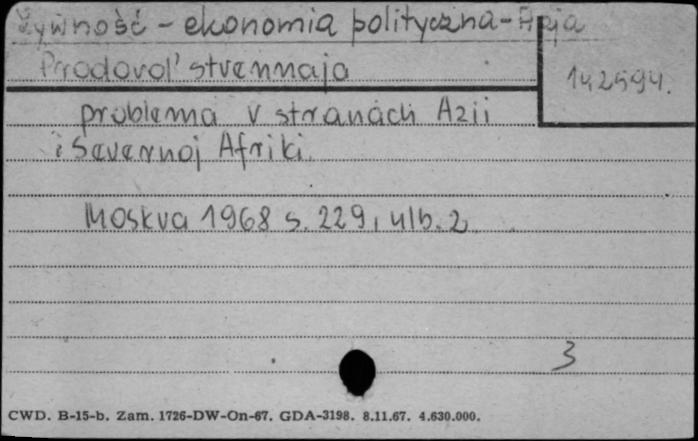 Żywność - ekonomia polityczna - Azja
Prodovol'stvennaja
142594.
problema v stranach Azii
i Severnoj Afriki.
Moskva 1968 s. 229, ulb. 2
3
CWD. B-15-b. Zam. 1726-DW-On-67. GDA-3198. 8.11.67. 4.630.000.